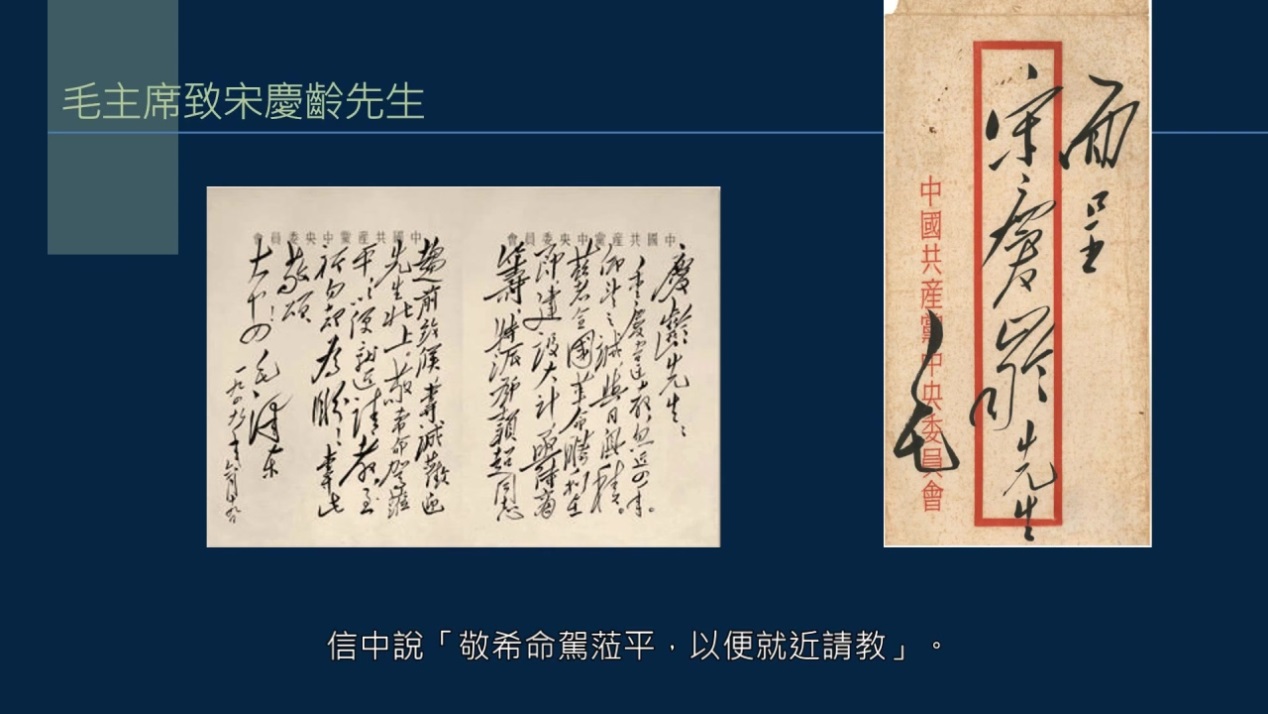 毛主席致宋慶齡先生
中國共産黨中央委員會
慶齡先生：
重慶違教，忽近四年。
仰望之誠，與日俱積。
茲者全國革命勝利在
即，建設大計，亟待商
籌，特派鄧穎超同志
中國共産黨中央委員會
趨前致候，專誠歡迎
先生北上。敬希命駕蒞
平，以便就近請教，至
祈勿却為盼！專此
敬頌
大安！ 毛澤东
一九四九年六月十九
面呈
宋慶齡先生
中國共産黨中央委員會
毛
信中說「敬希命駕蒞平，以便就近請教」。